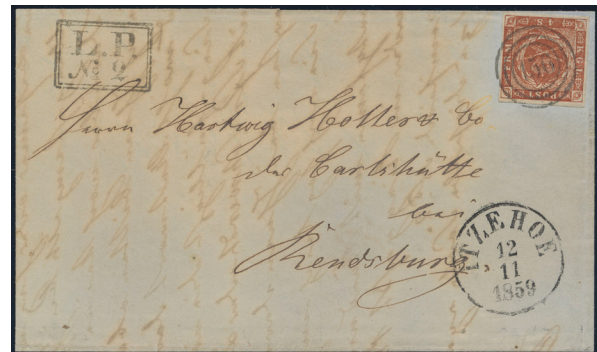 L.P.
№ 2
4 S.
K.G.L.
POST
FRM.
Herrn Hartwig Holler & Co
der Carlshütte
bei
Rendsburg
ITZEHOE
12
11
1859